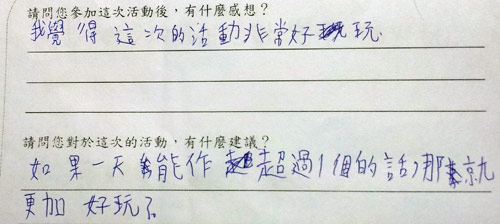 請問您參加這次活動後，有什麼感想？
我覺得這次的活動非常好玩
請問您對於這次的活動，有什麼建議？
如果一天能作超過1個的話，那就
更加好玩了